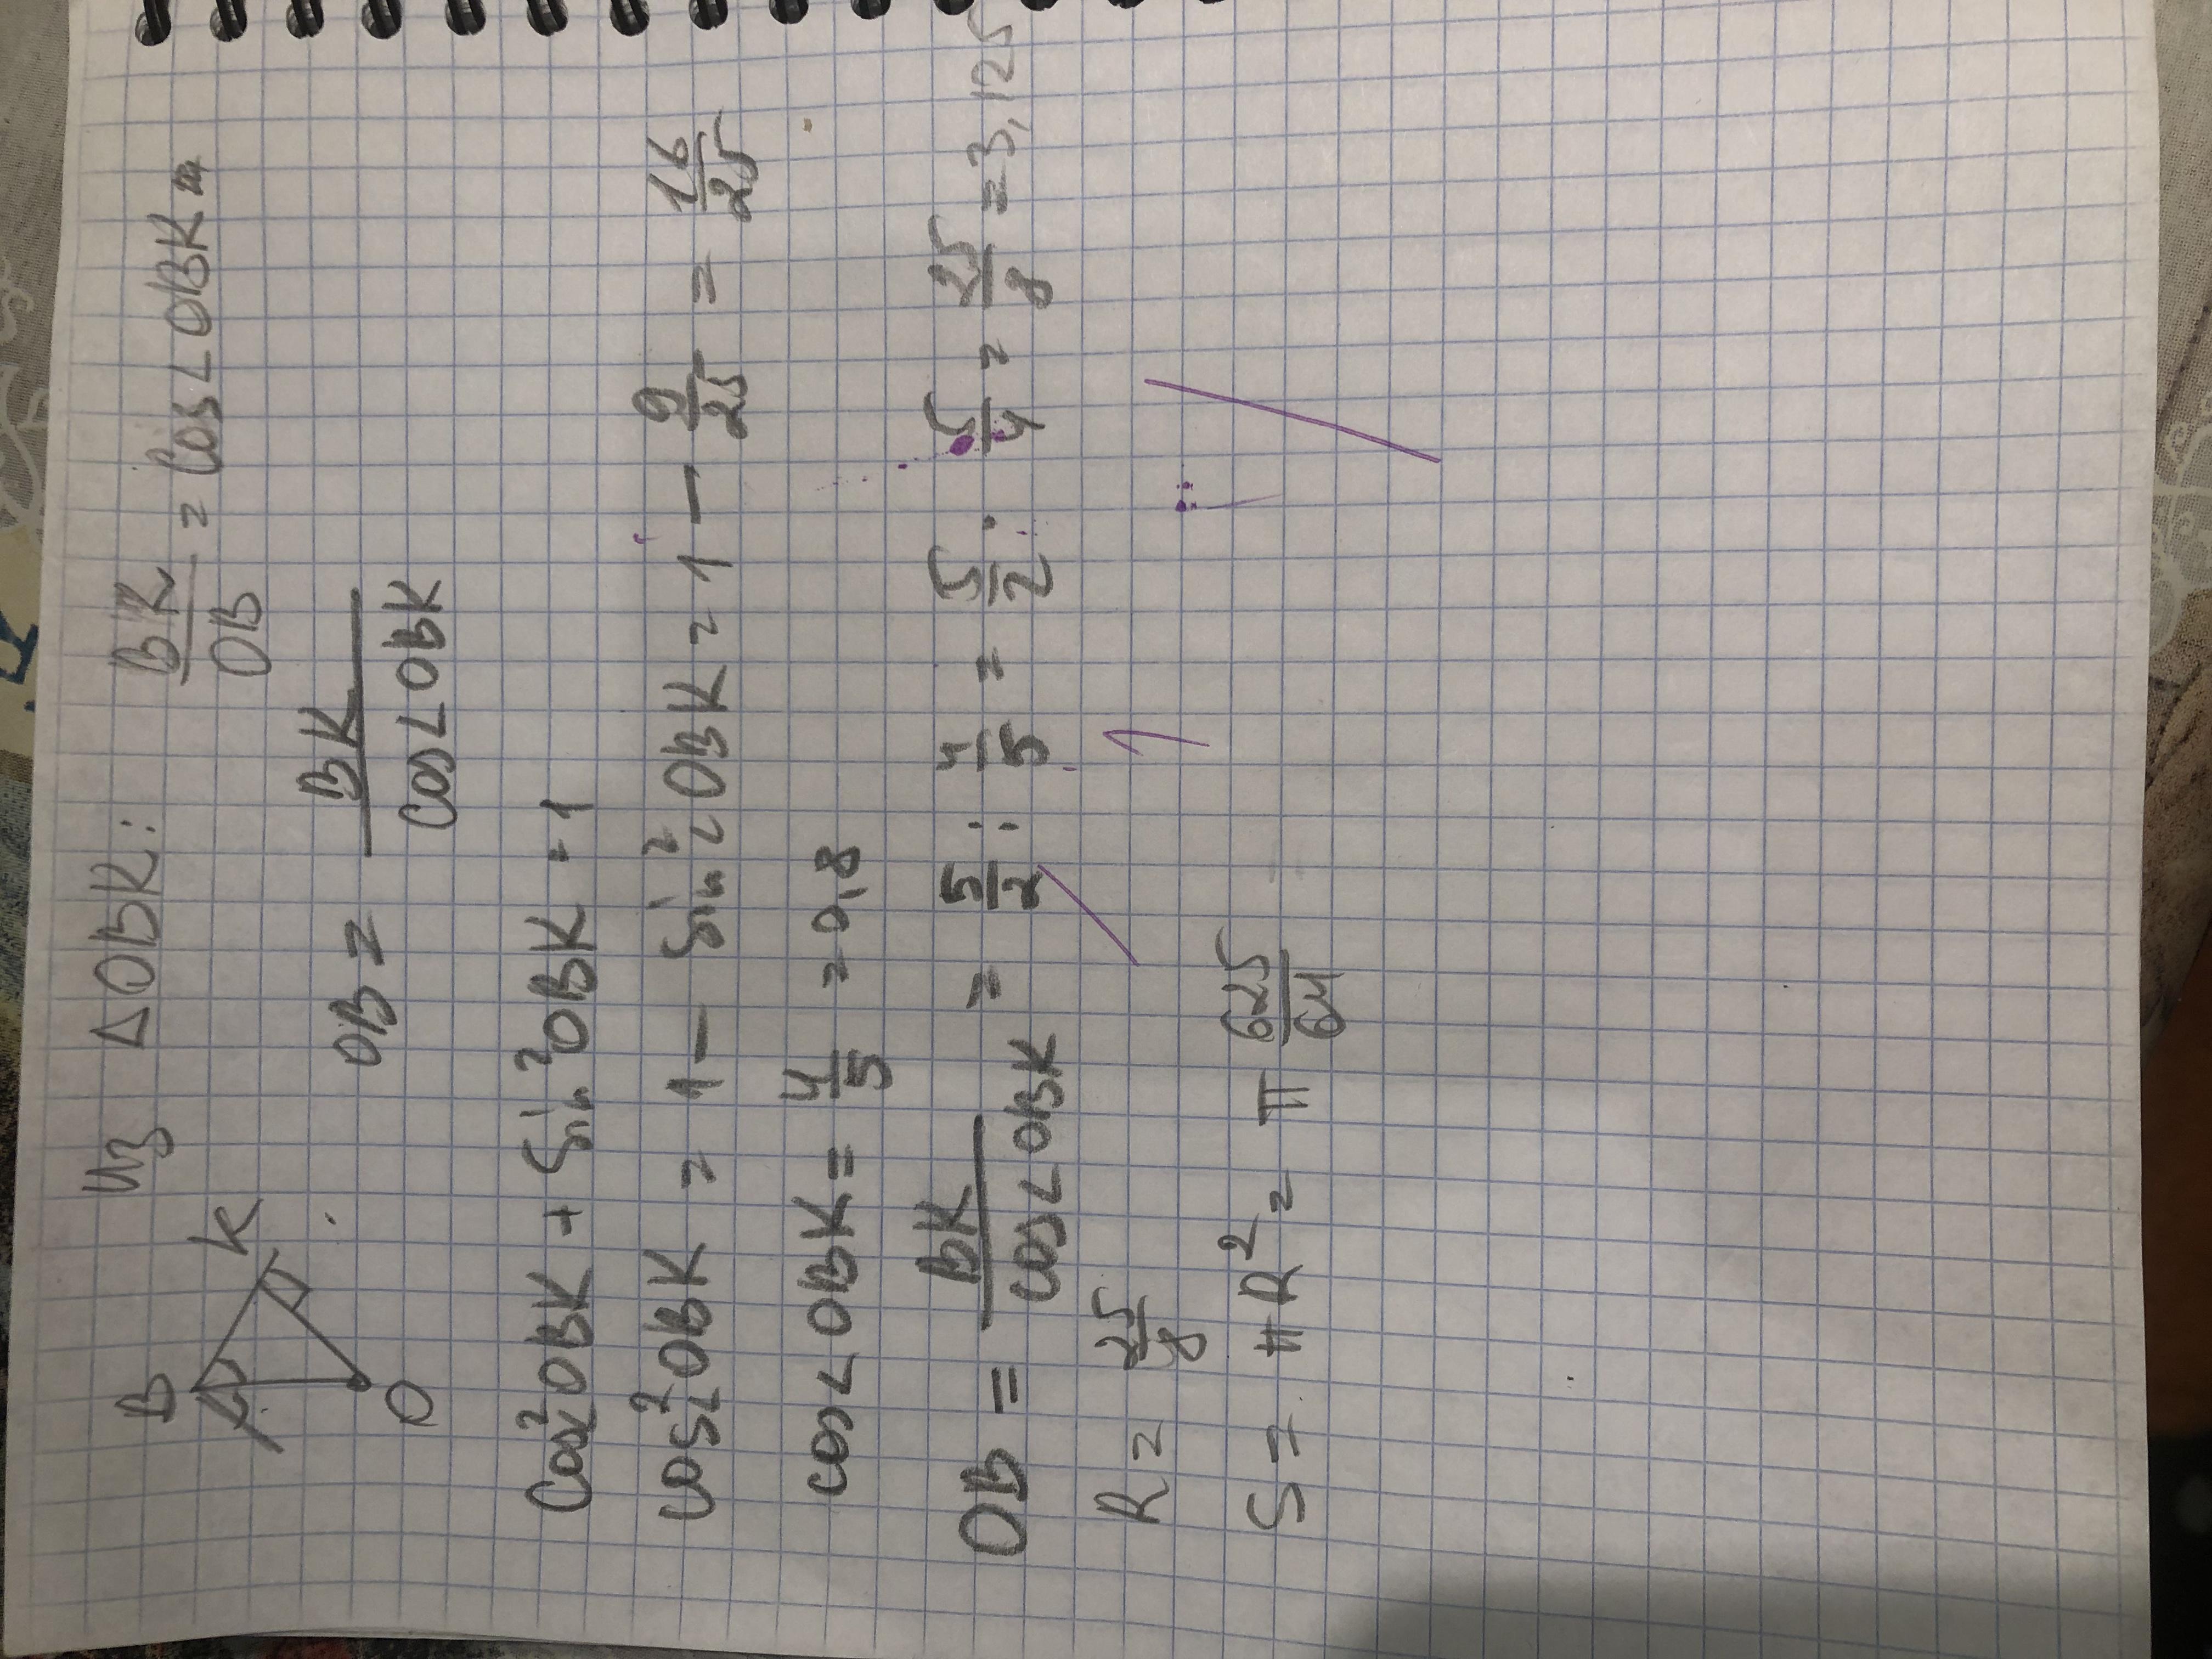 B
K
O
Из ΔOBK: BK/OB = cos∠OBK
OB = BK/cos∠OBK
cos²∠OBK + sin²OBK = 1
cos²∠OBK = 1 - sin²∠OBK = 1 - 9/25 = 16/25
cos∠OBK = 4/5 = 0,8
OB = BK/cos∠OBK = 5/2 : 4/5 = 5/2 · 5/4 = 25/8 = 3,125
R = 25/8
S = πR² = π 625/64